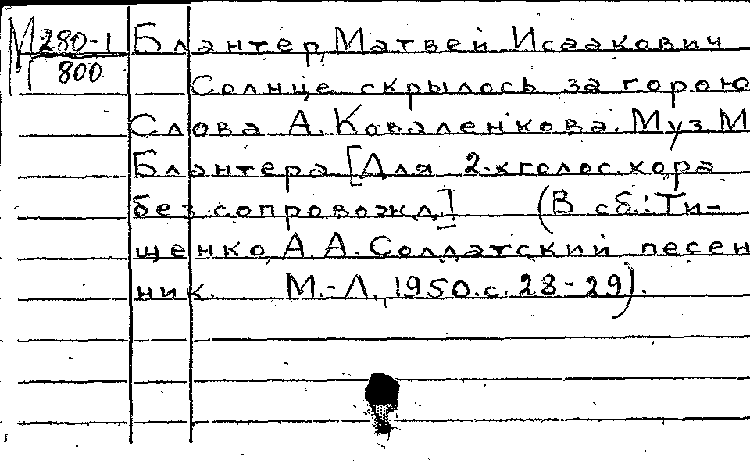 М 280-1 Блантер, Матвей Исаакович
Г 800
Солнце скрылось за горою
Слова А. Коваленкова. Муз. М.
Блантера [Для 2-хголос. хора
без сопровожд.] (В сб.: Ти-
щенко, А. А. Солдатский песен
ник. М.-Л., 1950. с. 28-29).